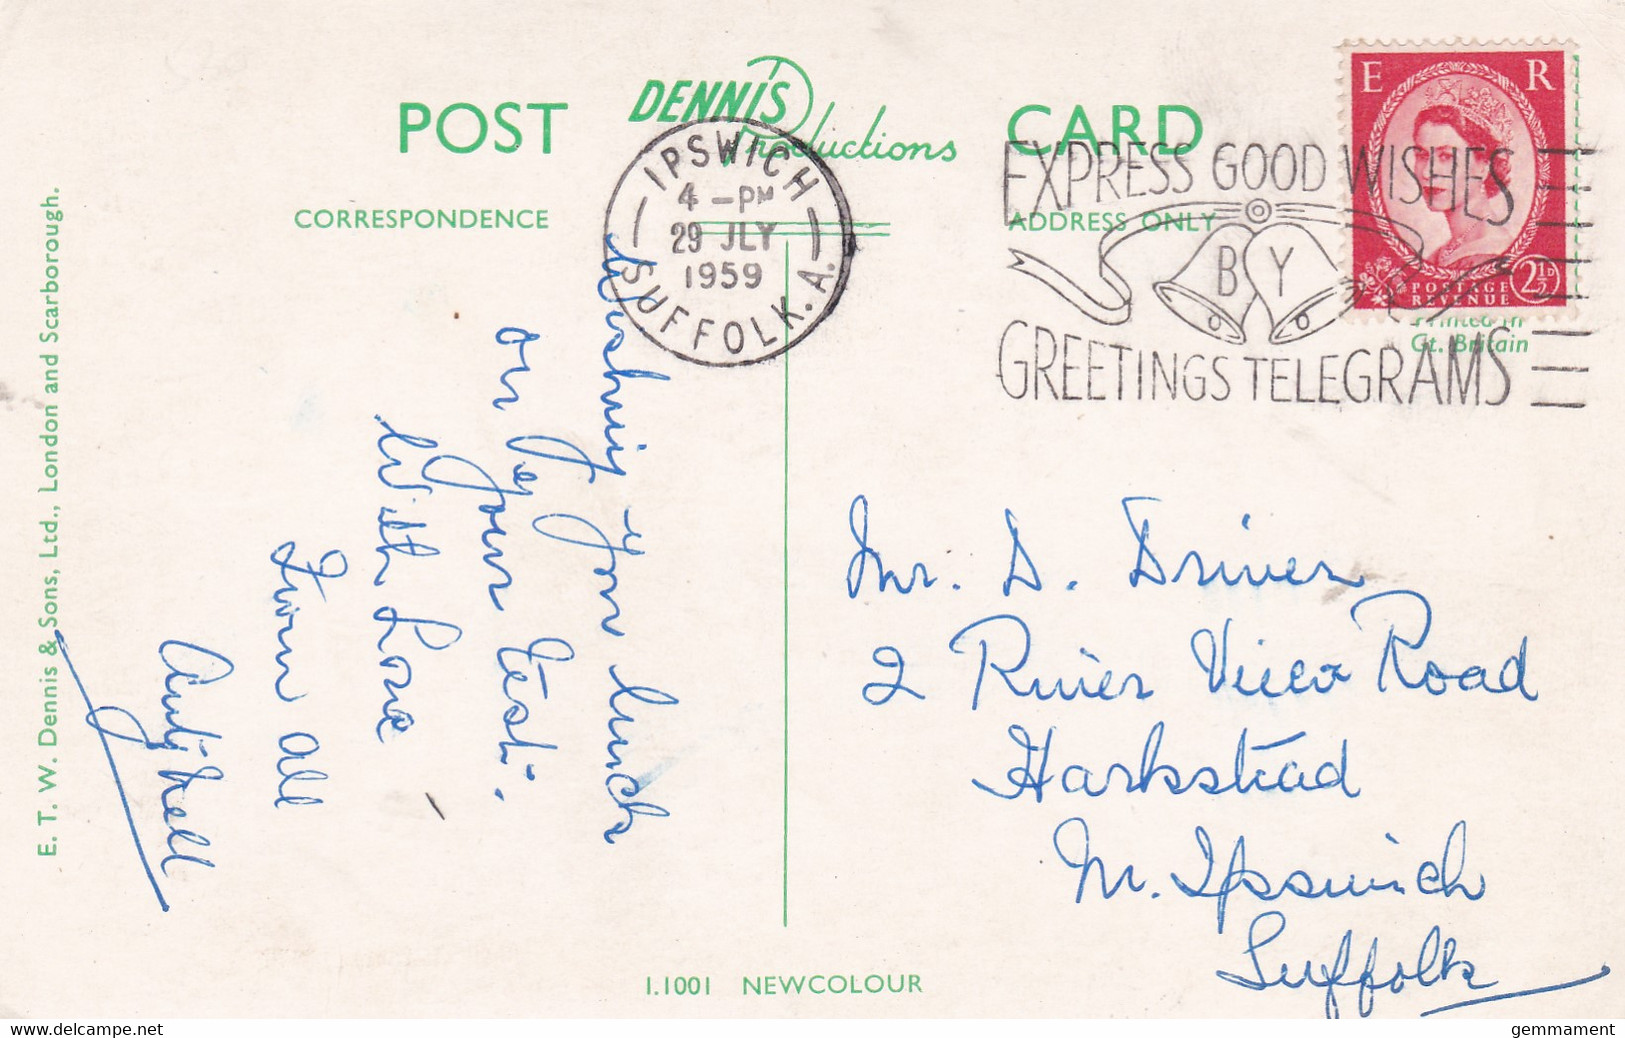 POST
DENNIS
Productions
CARD
CORRESPONDENCE
ADDRESS ONLY
IPSWICH
4 - PM
29 JLY
1959
SUFFOLK. A.
EXPRESS GOOD WISHES
BY
GREETINGS TELEGRAMS
E R
POSTAGE
REVENUE
2½D
Printed in
Gt. Britain
Wishing you luck
on
Your test.
With Love
From all
Aunty Nell
Mr. D. Driver
2 River View Road
Harkstead
Nr. Ipswich
Suffolk
E. T. W. Dennis & Sons, Ltd., London and Scarborough.
I.1001 NEWCOLOUR
www.delcampe.net
gemmament